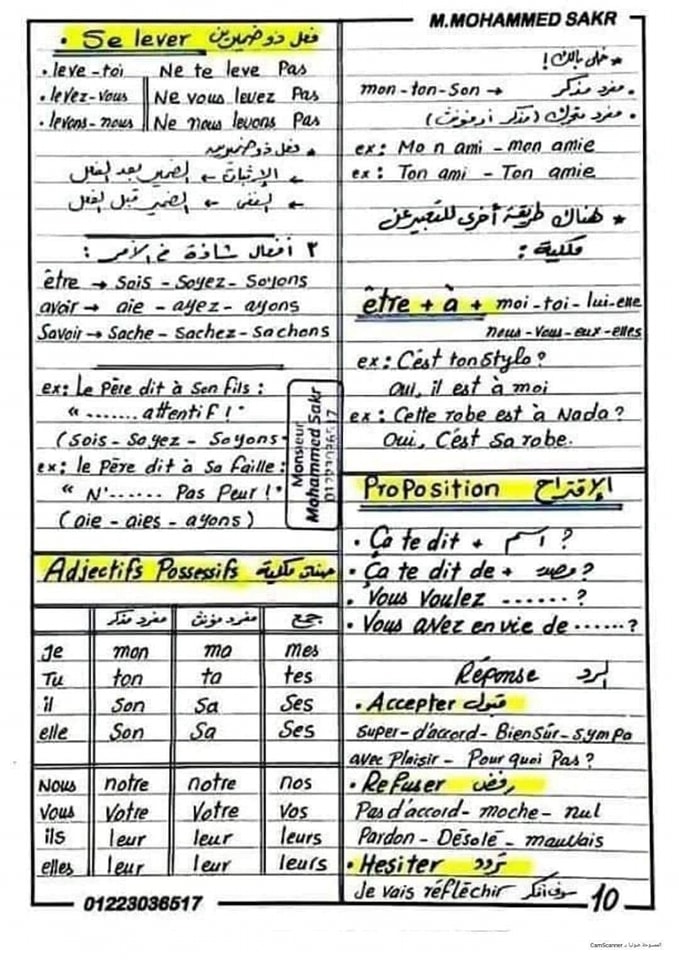 M.MOHAMMED SAKR
• Se lever فعل ذو ضميرين
• leve-toi Ne te leve Pas
• levez-vous Ne vous levez Pas
• levons-nous Ne nous levons Pas
• فعل ذو ضميرين
← الإثبات ← الضمير بعد الفعل
← النفى ← الضمير قبل الفعل
٣ أفعال شاذة فى الأمر :
être → Sois - Soyez - Soyons
avoir → aie - ayez - ayons
Savoir → Sache - Sachez - Sachons
ex: Le Père dit à Son fils :
“ ....... attentif !”
(Sois - Soyez - Soyons-
ex: le Père dit à Sa faille :
“ N'...... Pas Peur !”
(aie - aies - ayons)
Monsieur
Mohammed Sakr
01223036517
Adjectifs Possessifs صفات ملكية
مفرد مذكر مفرد مؤنث جمع
Je mon ma mes
Tu ton ta tes
il Son Sa Ses
elle Son Sa Ses
Nous notre notre nos
Vous Votre Votre Vos
ils leur leur leurs
elles leur leur leurs
01223036517
* خلى بالك !
mon-ton-Son → مفرد مذكر •
• مفرد متحرك (مذكر أو مؤنث)
ex: Mon ami - mon amie
ex: Ton ami - Ton amie
* هناك طريقة أخرى للتعبير عن
ملكية :
être + à + moi-toi-lui-elle
nous-vous-eux-elles
ex: C'est ton Stylo ?
Oui, il est à moi
ex: Cette robe est à Nada ?
Oui, C'est Sa robe.
Proposition الإقتراح
• Ça te dit + اسم ?
• Ça te dit de + مصدر ?
• Vous Voulez ....... ?
• Vous avez en vie de ...... ?
Réponse الرد
• Accepter قبول
Super-d'accord-Bien Sûr-Sympa
avec Plaisir - Pour quoi Pas ?
• Refuser رفض
Pas d'accord- moche- nul
Pardon - Désolé - mauvais
• Hesiter تردد
Je vais réfléchir سوف أفكر
10
CamScanner